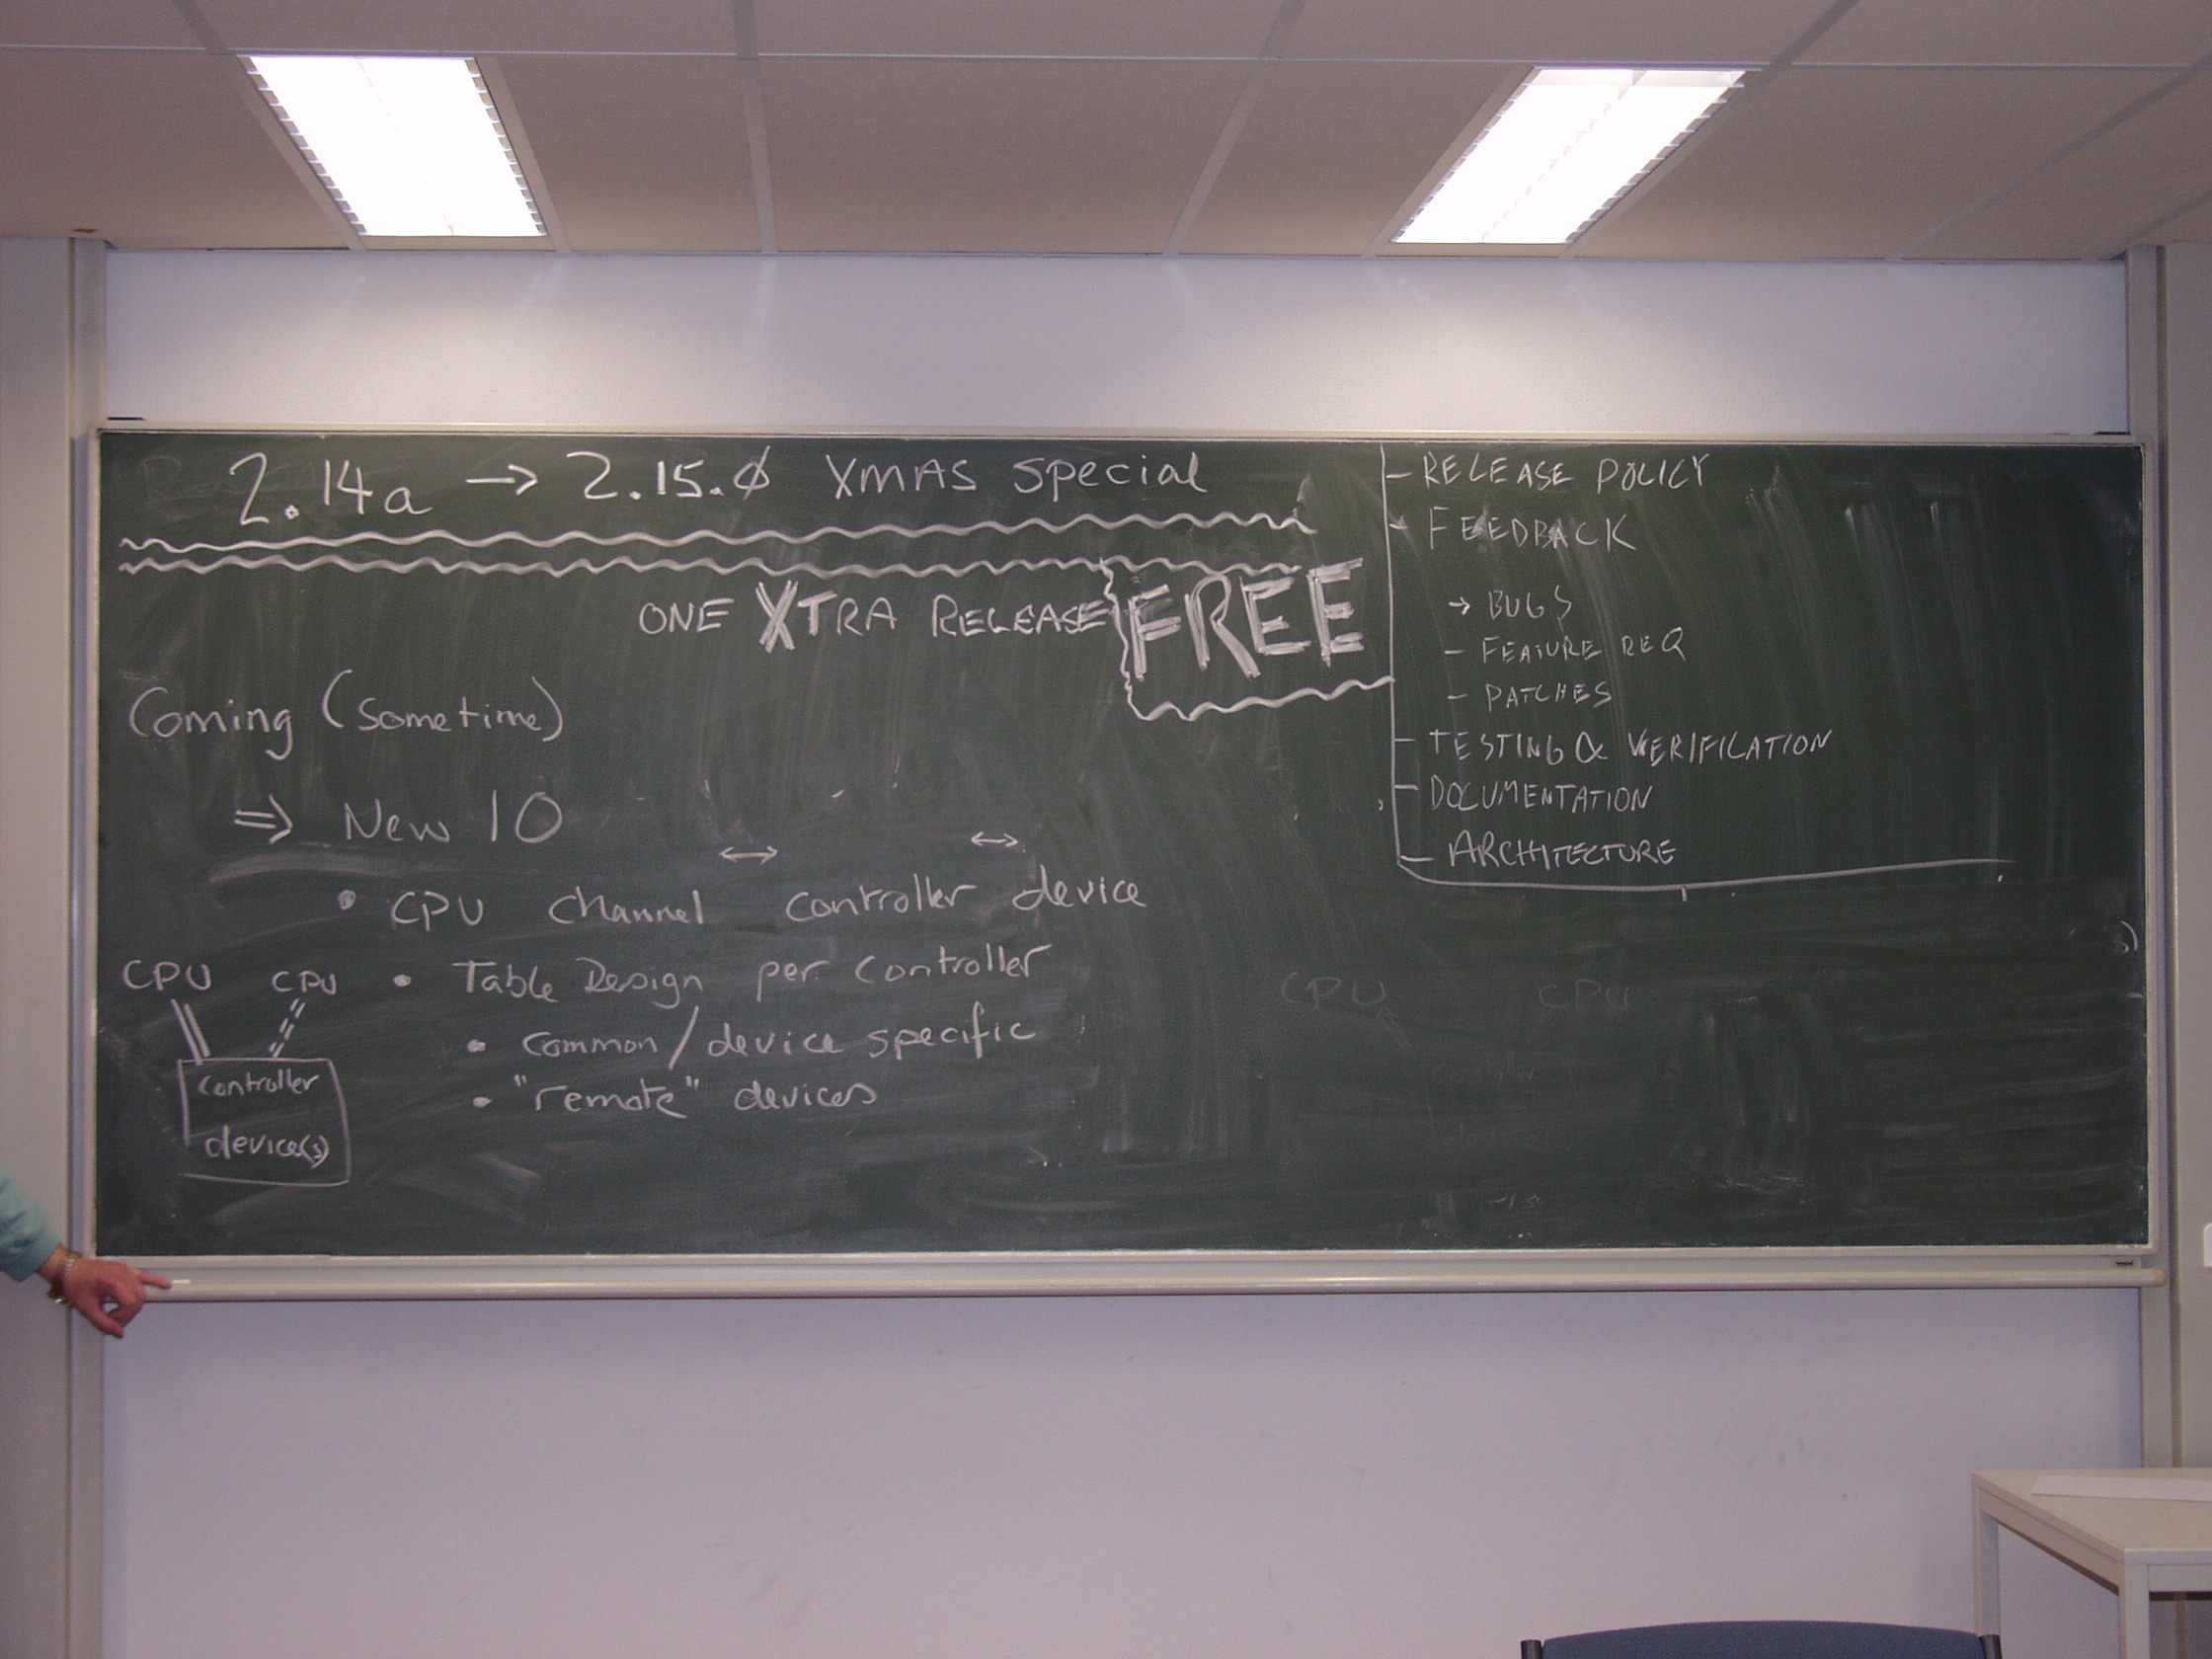 2.14a → 2.15.0 XMAS special
ONE XTRA RELEASE FREE
Coming (sometime)
⇒ New IO
↔ ↔
• CPU channel controller device
• Table Design per controller
• common/device specific
• "remote" devices
CPU CPU
controller
device(s)
- RELEASE POLICY
- FEEDBACK
→ BUGS
- FEATURE REQ
- PATCHES
- TESTING & VERIFICATION
- DOCUMENTATION
- ARCHITECTURE
CPU CPU